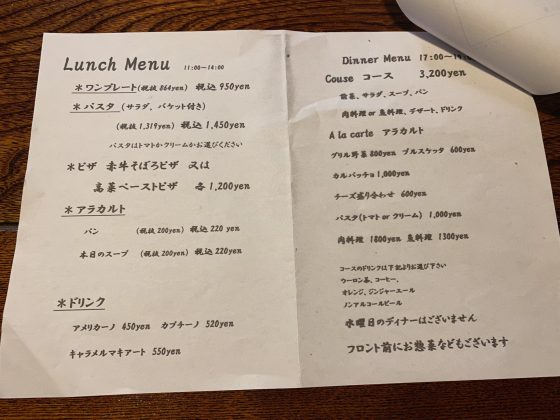 Lunch Menu 11:00~14:00
＊ワンプレート(税抜 864yen) 税込 950yen
＊パスタ (サラダ、バケット付き)
(税抜 1,319yen) 税込 1,450yen
パスタはトマトかクリームかお選びください
＊ピザ 赤牛そぼろピザ 又は
高菜ペーストピザ 各1,200yen
＊アラカルト
パン (税抜 200yen) 税込 220 yen
本日のスープ (税抜 200yen) 税込 220yen
＊ドリンク
アメリカーノ 450yen カプチーノ 520yen
キャラメルマキアート 550yen
Dinner Menu 17:00~
Couse コース 3,200yen
前菜、サラダ、スープ、パン
肉料理 or 魚料理、デザート、ドリンク
A la carte アラカルト
グリル野菜 800yen ブルスケッタ 600yen
カルパッチョ 1,000yen
チーズ盛り合わせ 600yen
パスタ(トマト or クリーム) 1,000yen
肉料理 1800yen 魚料理 1300yen
コースのドリンクは下記よりお選び下さい
ウーロン茶、コーヒー、
オレンジ、ジンジャーエール
ノンアルコールビール
水曜日のディナーはございません
フロント前にお惣菜などもございます